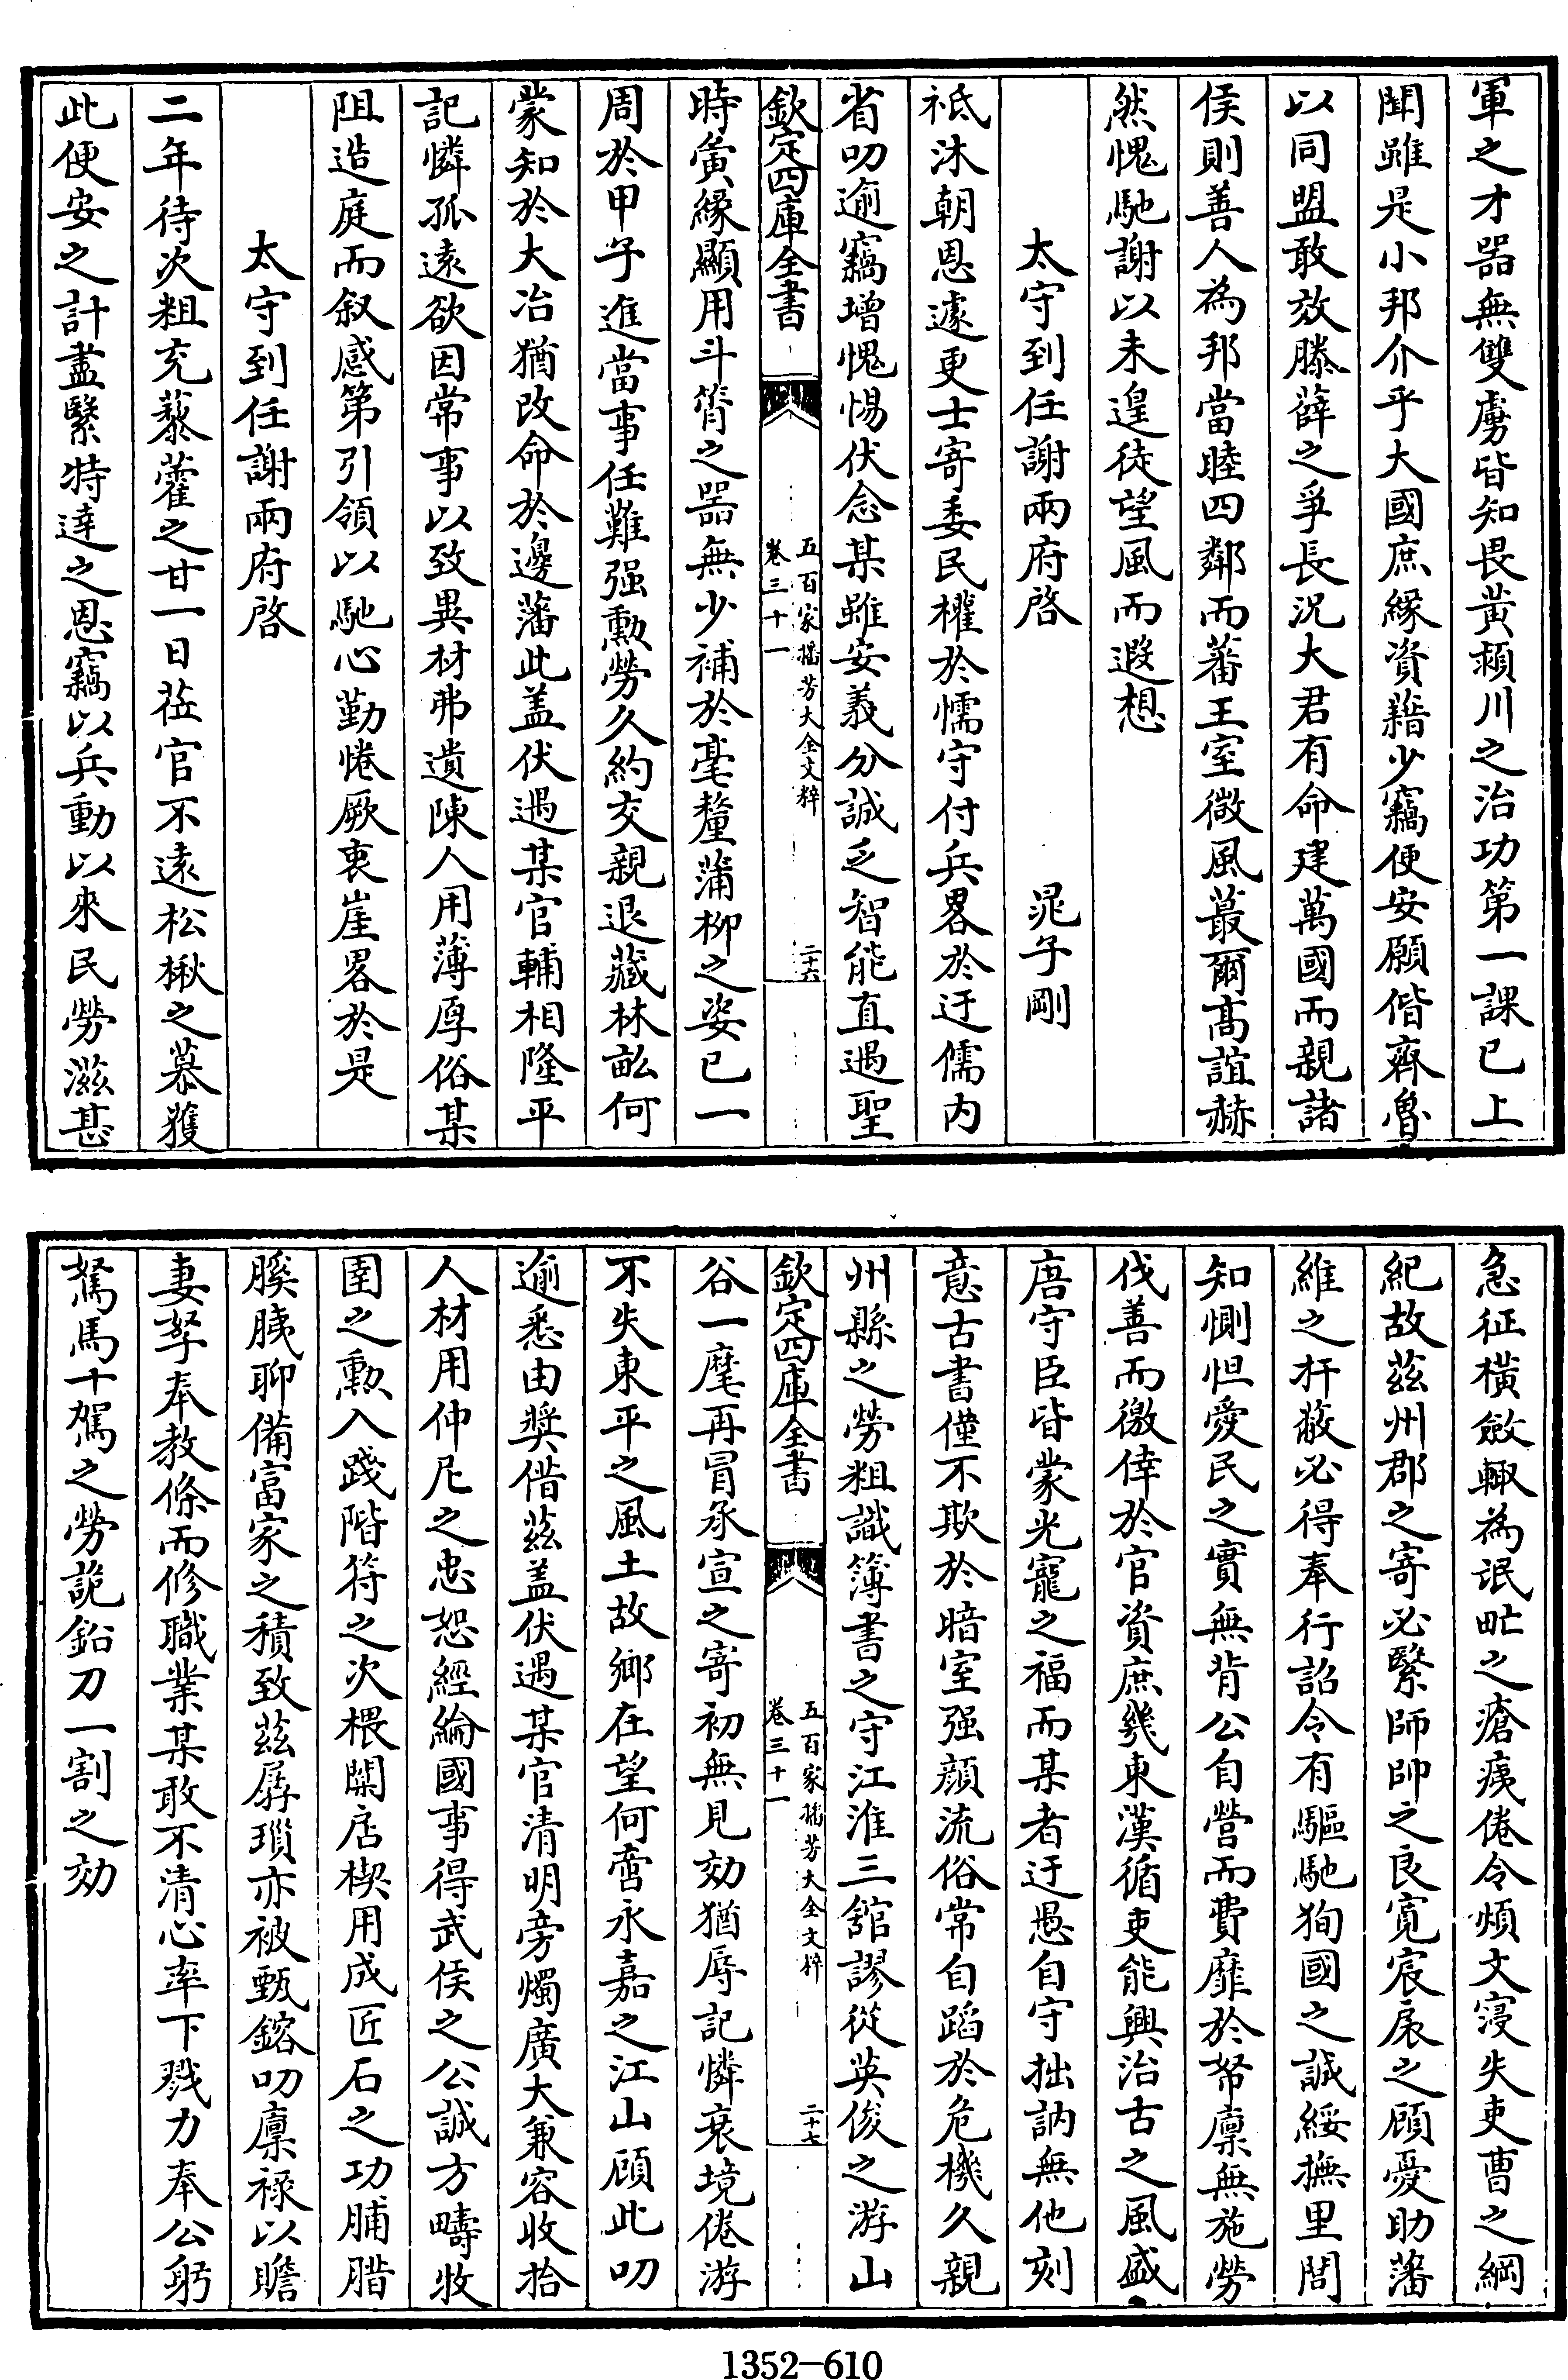 軍之才器無雙虜皆知畏黃潁川之治功第一課已上
聞雖是小邦介乎大國庶緣資藉少竊便安願偕齊魯
以同盟敢效滕薛之爭長況大君有命建萬國而親諸
侯則善人為邦當睦四鄰而蕃王室微風蕞爾高誼赫
然愧馳謝以未遑徒望風而遐想
太守到任謝兩府啓 晁子剛
祗沐朝恩遽更士寄委民權於懦守付兵畧於迂儒内
省叨逾竊增愧惕伏念某雖安義分誠乏智能直遇聖
欽定四庫全書 五百家播芳大全文粹 卷三十一 二十六
時夤緣顯用斗筲之器無少補於毫釐蒲柳之姿已一
周於甲子進當事任難强勲勞久約交親退藏林畝何
蒙知於大冶猶改命於邊藩此盖伏遇某官輔相隆平
記憐孤遠欲因常事以致異材弗遺陳人用薄厚俗某
阻造庭而叙感第引領以馳心勤惓厥衷崖畧於是
太守到任謝兩府啓
二年待次粗充藜藿之甘一日莅官不遠松楸之慕獲
此便安之計盡繄特達之恩竊以兵動以來民勞滋甚
急征橫斂輙為氓甿之瘡痍倦令煩文寖失吏曹之綱
紀故茲州郡之寄必繄師帥之良寛宸扆之顧憂助藩
維之扞蔽必得奉行詔令有驅馳狥國之誠綏撫里閭
知惻怛愛民之實無背公自營而費靡於帑廪無施勞
伐善而徼倖於官資庶幾東漢循吏能興治古之風盛
唐守臣皆蒙光寵之福而某者迂愚自守拙訥無他刻
意古書僅不欺於暗室强顔流俗常自蹈於危機久親
州縣之勞粗識簿書之守江淮三舘謬從英俊之游山
欽定四庫全書 五百家播芳大全文粹 卷三十一 二十七
谷一麾再冒承宣之寄初無見効猶辱記憐衰境倦游
不失東平之風土故鄉在望何啻永嘉之江山顧此叨
逾悉由奬借茲盖伏遇某官清明旁燭廣大兼容收拾
人材用仲尼之忠恕經綸國事得武侯之公誠方疇牧
圉之勲入踐階符之次椳闑扂楔用成匠石之功脯腊
膎胰聊備富家之積致茲孱瑣亦被甄鎔叨廪禄以贍
妻孥奉教條而修職業某敢不清心率下戮力奉公躬
駑馬十駕之勞詭鉛刀一割之効
1352-610